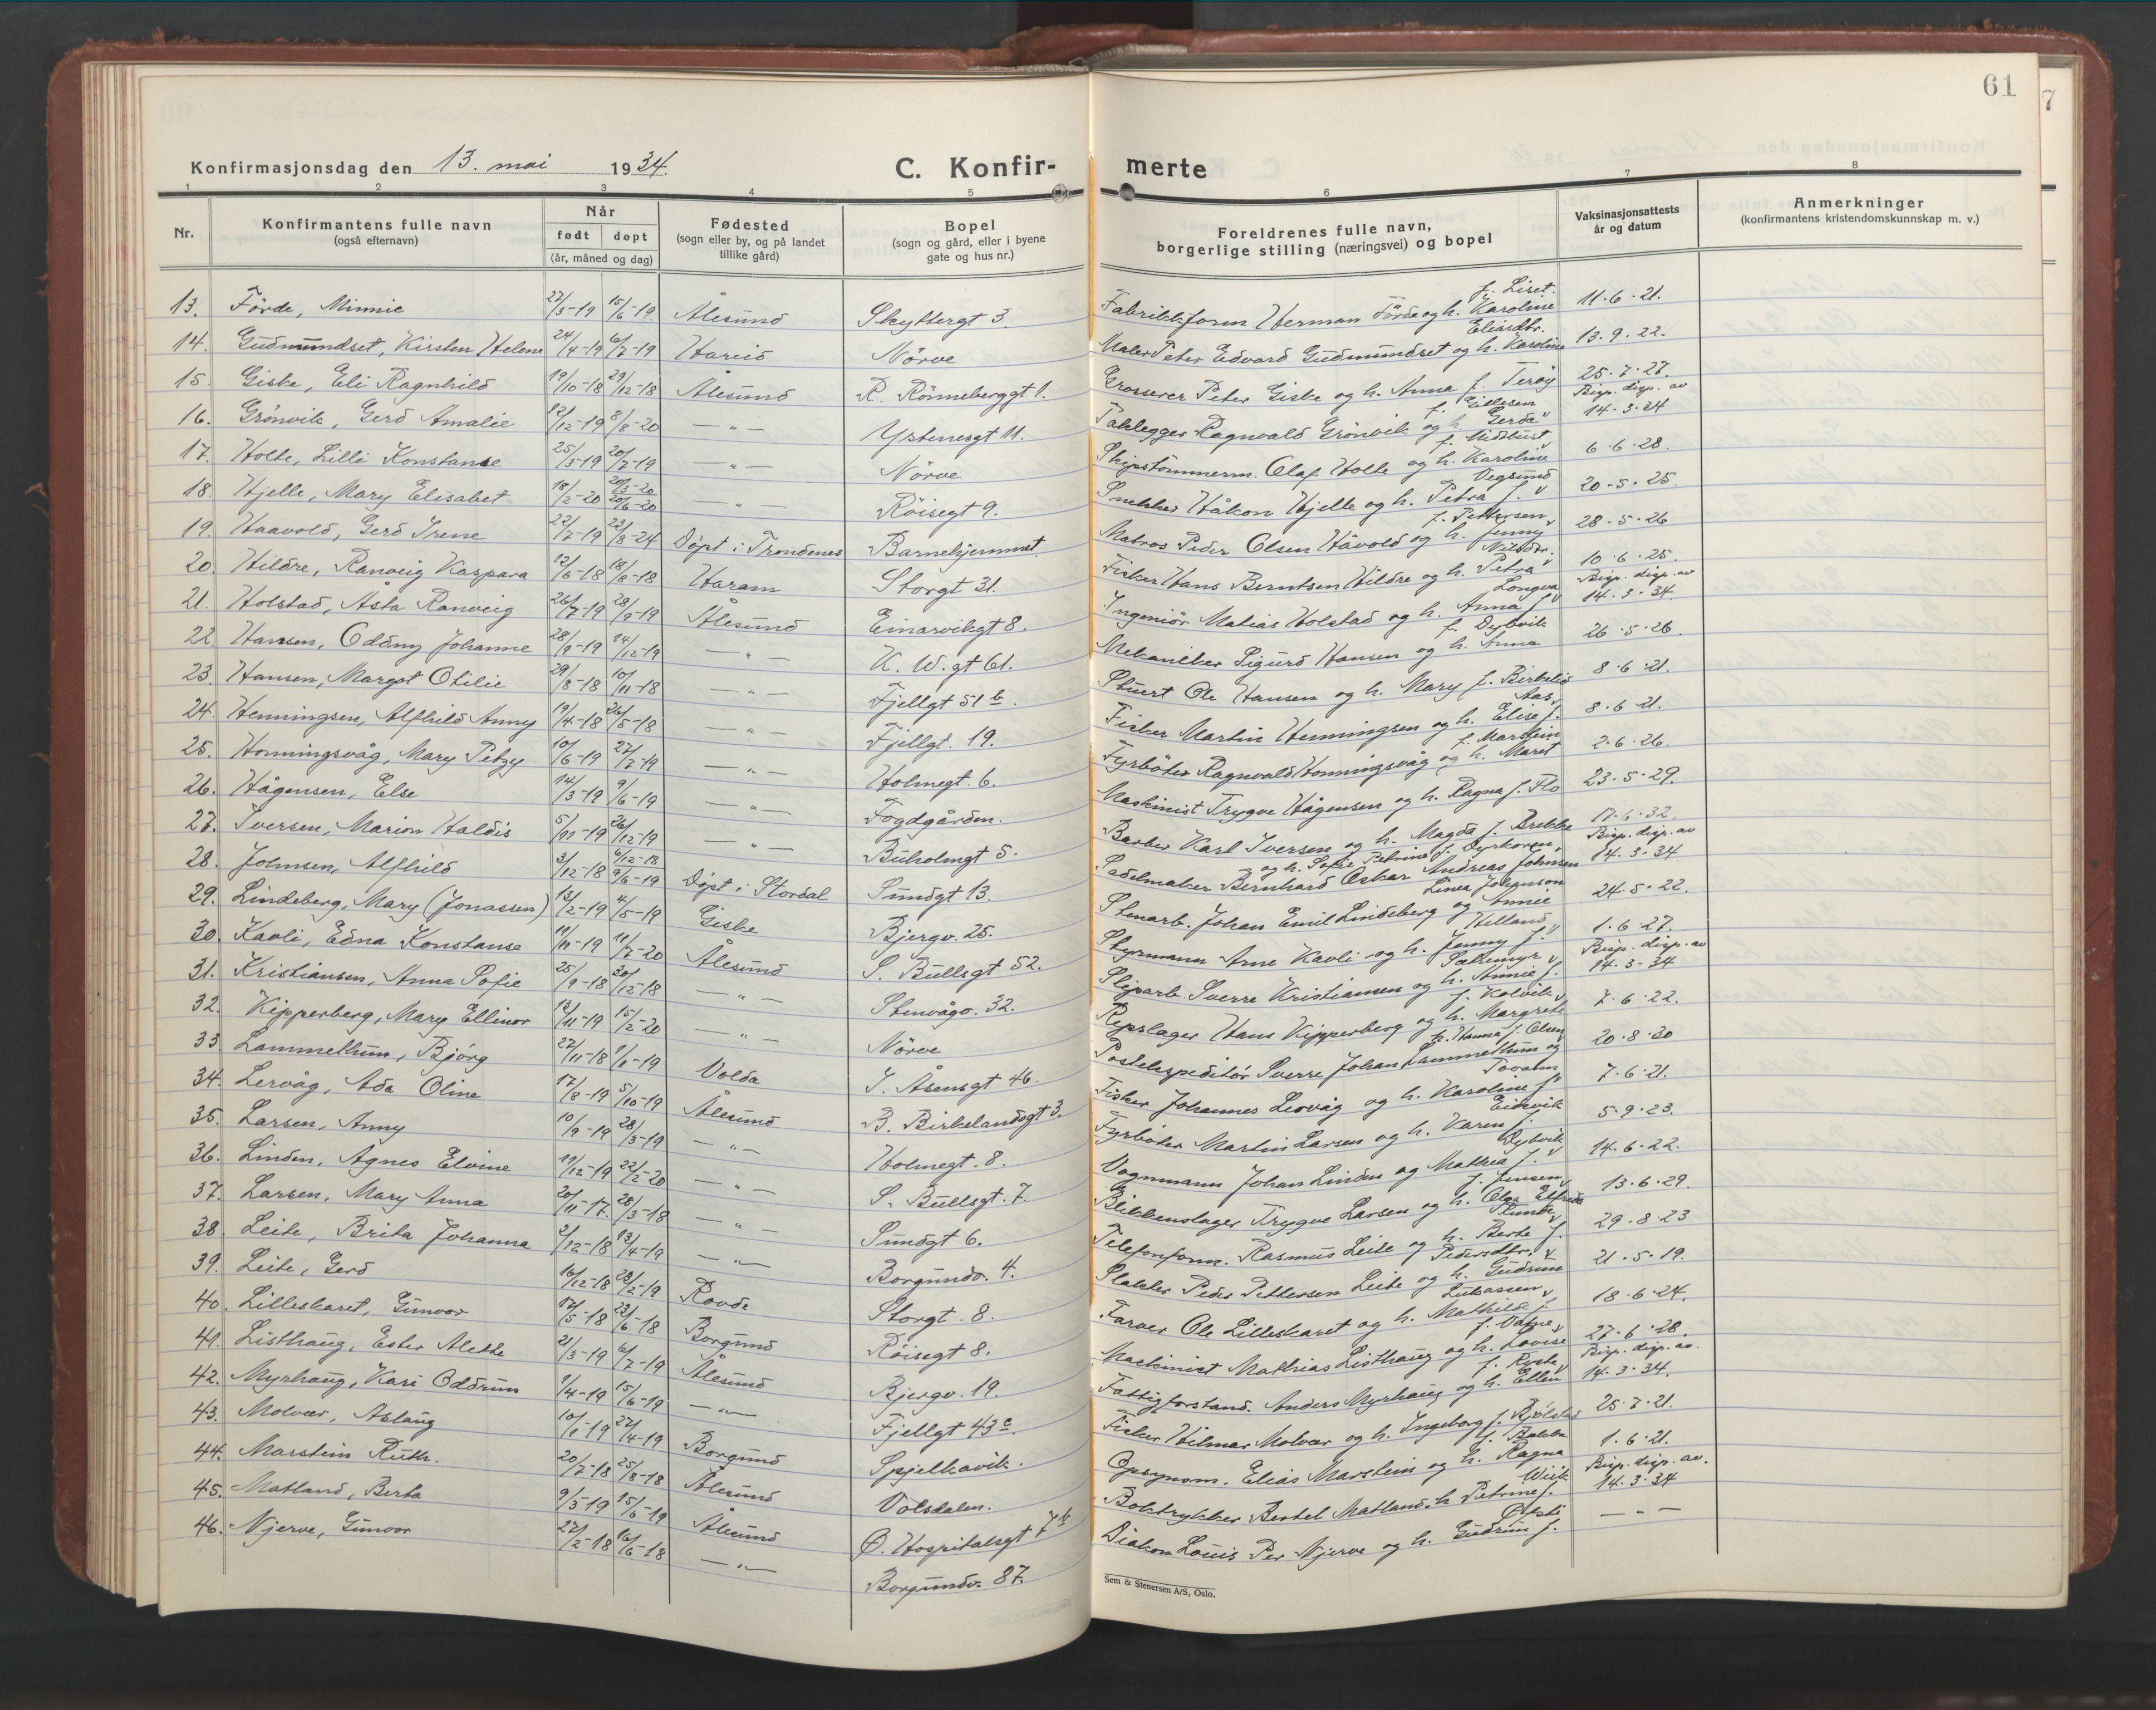 61
7
Konfirmasjonsdag den 13. mai 1934.
C. Konfir-
merte
1 2 3 4 5 6 7 8
Nr.
Konfirmantens fulle navn
(også efternavn)
Når
født døpt
(år, måned og dag)
Fødested
(sogn eller by, og på landet
tillike gård)
Bopel
(sogn og gård, eller i byene
gate og hus nr.)
Foreldrenes fulle navn,
borgerlige stilling (næringsvei) og bopel
Vaksinasjonsattests
år og datum
Anmerkninger
(konfirmantens kristendomskunnskap m. v.)
13. Förde, Minnie 27/3-19 15/6-19. Ålesund Skyttergt 3. Fabrikkform. Herman Förde og h. Karoline f. Liset. 11.6.21.
14. Gudmundset, Kirsten Helene 24/4-19 6/7-19 Hareid Nörve Maler Peter Edvard Gudmundset og h. Karoline Eliasdtr. 13.9.22.
15. Giske, Eli Ragnhild 19/10-18 29/12-18 Ålesund R. Rönneberggt 1. Grosserer Peter Giske og h. Anna f. Teröy 25.7.27.
16. Grönvik, Gerd Amalie 12/12-19 8/8-20 — " — Ystenesgt 11. Taklegger Ragnvald Grönvik og h. Gerda f. Gillesen Bisp. disp. av 14-3-34
17. Holte, Lilli Konstanse 25/3-19 20/7-19 — " — Nörve Skipstömmerm. Olaf Holte og h. Karoline f. Midtbust 6.6.28.
18. Hjelle, Mary Elisabet 18/2-20 20/3-20 20/6-20 — " — Röisegt 9. Snekker Håkon Hjelle og h. Petra f. Vegsund 20-5.25.
19. Haavold, Gerd Irene 22/7-19 23/3-24 Döpt i Trondenes Barnehjemmet. Matros Peder Olsen Håvold og h. Jenny f. Pettersen 28-5-26
20. Hildre, Ranveig Kaspara 12/6-18 18/8-18 Haram Storgt 31. Fisker Hans Berntsen Hildre og h. Petra Nilsdtr. 10.6.25.
21. Holstad, Åsta Ranveig 26/7-19 28/9-19 Ålesund Einarvikgt 8. Ingeniör Matias Holstad og h. Anna f. Longva Bisp. disp. av 14.3.34.
22. Hansen, Oddny Johanne 28/9-19 14/12-19 — " — K. W. gt 61. Mekaniker Sigurd Hansen og h. Anna f. Dybvik 26.5.26.
23. Hansen, Margot Otilie 29/8-18 10/11-18 — " — Fjellgt 51 b. Stuert Ole Hansen og h. Mary f. Birkelid 8.6.21.
24. Henningsen, Alfhild Anny 19/4-18 26/5-18 — " — Fjellgt. 19. Fisker Martin Henningsen og h. Elise f. Aas 8.6.21.
25. Honningsvåg, Mary Petzy 10/6-19 27/7-19 — " — Holmegt. 6. Fyrböter Ragnvald Honningsvåg og h. Maret f. Marstein 2.6.26.
26. Hågensen, Else 14/3-19 9/6-19 — " — Fogdgården. Maskinist Trygve Hågensen og h. Ragna f. Flo 23.5.29.
27. Iversen, Marion Haldis 5/11-19 26/12-19 — " — Buholmgt 5. Barber Karl Iversen og h. Magda f. Brekke 17.6.32.
28. Johnsen, Alfhild 3/12-18 6/12-18 9/6-19 Döpt i Stordal Sundgt 13. Sadelmaker Bernhard Oskar Andreas Johnsen og h. Sofie Petrine f. Dyrkoren Bisp. disp. av 14.3.34
29. Lindeberg, Mary (Jonassen) 13/2-19 4/5-19 Giske Bjergv. 25. Stenarb. Johan Emil Lindeberg og Annie Linea Johanson 24.5.22.
30. Kavli, Edna Konstanse 11/11-19 11/7-20 Ålesund S. Bullsgt 52. Styrmann Arne Kavli og h. Jenny f. Helland 1.6.27.
31. Kristiansen, Anna Sofie 25/9-18 30/12-18 — " — Stenvågv. 32. Sliparb. Sverre Kristiansen og h. Annie f. Sattemyr Bisp. disp. av 14-3-34
32. Kipperberg, Mary Ellinor 12/11-19 15/2-20 — " — Nörve Repslager Hans Kipperberg og h. Margrete f. Kolvik 7.6.22.
33 Lammethun, Björg 22/11-18 1/1-19 Volda I. Åsensgt 46. Postekspeditör Sverre Johan Lammethun og h. Hanna f. Olsen 20.8.30
34. Lervåg, Ada Oline 17/8-19 5/10-19 Ålesund B. Birkelandsgt 3. Fisker Johannes Lervåg og h. Karoline f. 7.6.21.
35. Larsen, Anny 10/9-19 28/3-19 — " — Holmegt. 8. Fyrböter Martin Larsen og h. Karen f. Eidsvik 5.9.23.
36. Linden, Agnes Elvine 11/12-19 22/2-20 — " — S. Bullsgt. 7. Vognmann Johan Linden og Mathea f. Dybvik 14.6.22.
37. Larsen, Mary Anna 20/11-17. 28/3-18 — " — Sundgt 6. Blikkenslager Trygve Larsen og h. Olga Elfrida f. Jensen 13.6.29.
38. Leite, Brita Johanna 2/12-18 13/4-19 — " — Borgundv. 4. Telefonform. Rasmus Leite og h. Berte f. 29.8.23
39. Leite, Gerd 16/12-18 23/2-19 Rovde Storgt. 8. Slakter Peder Pettersen Leite og h. Gudrun Pedersdtr. 21.5.19.
40. Lilleskaret, Gunvor 17/5-18 23/6-18 Borgund Röisegt 8. Farver Ole Lilleskaret og h. Mathilde f. Lukassen 18.6.24.
41. Listhaug, Ester Alette 21/3-19 6/7-19 Ålesund Bjergv. 19. Maskinist Mathias Listhaug og h. Lovise f. Vatne 27.6.28.
42. Myrhaug, Kari Oddrun 1/4-19 15/6-19 — " — Fjellgt 43 c. Fattigforstand. Anders Myrhaug og h. Ellen f. Roste Bisp. disp. av. 14.3.34.
43. Molvær, Aslaug 10/1-19 27/4-19 Borgund Spjelkavik. Fisker Hilmar Molvær og h. Ingeborg f. Bjölstad 25.7.21.
44. Marstein Ruth. 20/7-18 25/8-18 Ålesund Volsdalen. Opsynsm. Elias Marstein og h. Ragna f. Bakke 1.6.21.
45. Matland, Berta 9/5-19 15/6-19 Ålesund Ö. Hospitalsgt 7 b Boktrykker Bertel Matland h. Petrine f. Wiik Bisp. disp. av. 14.3.34
46. Njerve, Gunvor 27/2-18 16/6-18 — " — Borgundv. 87. Diakon Louis Per Njerve og h. Gudrun f. Örsti — " —
Sem & Stenersen A/S, Oslo.